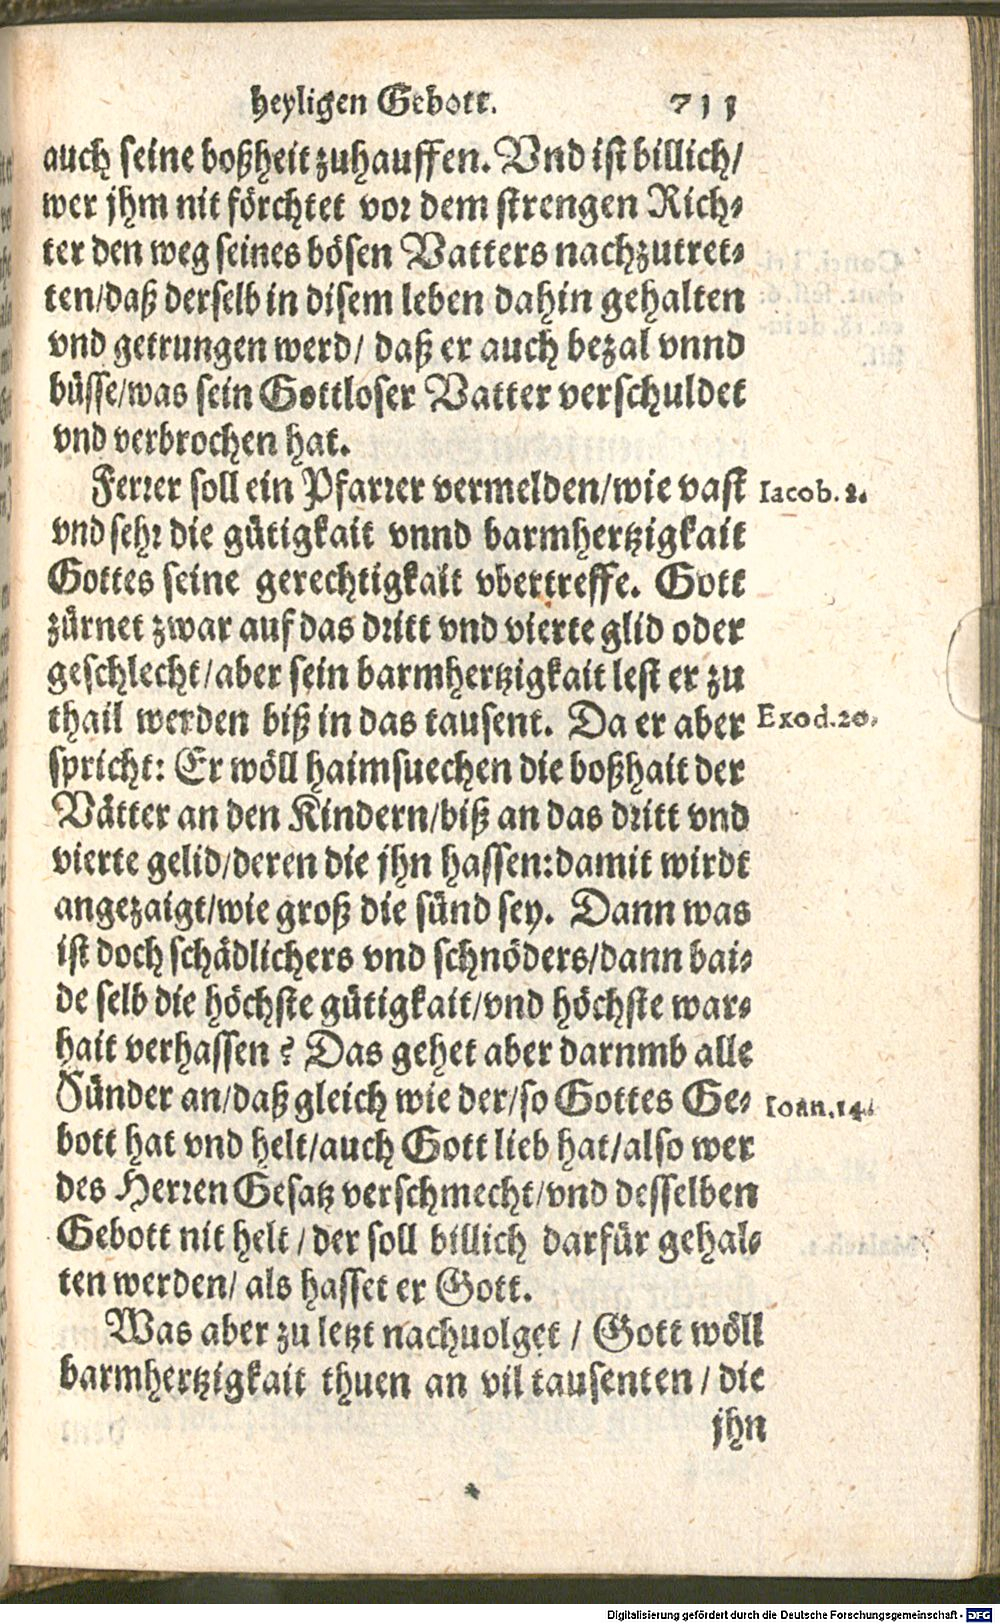 heyligen Gebott. 711
auch seine boßheit zuhauffen. Vnd ist billich/
wer jhm nit förchtet vor dem strengen Rich-
ter den weg seines bösen Vatters nachzutret-
ten/daß derselb in disem leben dahin gehalten
vnd getrungen werd/ daß er auch bezal vnnd
büsse/was sein Gottloser Vatter verschuldet
vnd verbrochen hat.
Ferrer soll ein Pfarrer vermelden/wie vast
Iacob. 2.
vnd sehr die gütigkait vnnd barmhertzigkait
Gottes seine gerechtigkait vbertreffe. Gott
zürnet zwar auf das dritt vnd vierte glid oder
geschlecht/aber sein barmhertzigkait lest er zu
thail werden biß in das tausent. Da er aber
Exod.20.
spricht: Er wöll haimsuechen die boßhait der
Vätter an den Kindern/biß an das dritt vnd
vierte gelid/deren die jhn hassen:damit wirdt
angezaigt/wie groß die sünd sey. Dann was
ist doch schädlichers vnd schnöders/dann bai-
de selb die höchste gütigkait/vnd höchste war-
hait verhassen? Das gehet aber darnmb alle
Sünder an/daß gleich wie der/so Gottes Ge-
Ioan.14.
bott hat vnd helt/auch Gott lieb hat/also wer
des Herren Gesatz verschmecht/vnd desselben
Gebott nit helt/der soll billich darfür gehal-
ten werden/ als hasset er Gott.
Was aber zu letzt nachuolget / Gott wöll
barmhertzigkait thuen an vil tausenten / die
jhn
Digitalisierung gefördert durch die Deutsche Forschungsgemeinschaft - DFG